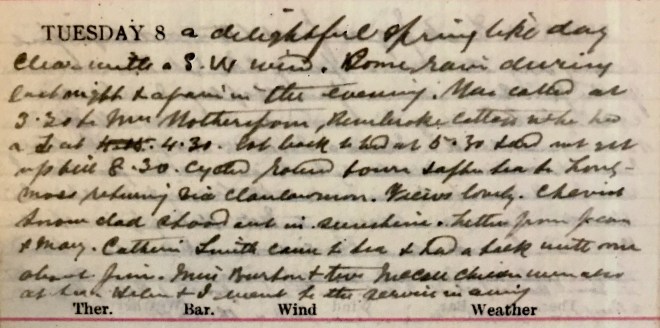 TUESDAY 8 a delightful spring like day
Clear with a S.W wind. Some rain during
last night & again in the evening. Was called at
3.30 to Mrs Motherspoon, Pembroke Cottage who had
a at 4.30. Got back to bed at 5.30 & did not get
up till 8.30. Cycled round town after tea to Long-
moss returning via Clanlawmon. Views lovely. Cheviot
snow clad stood out in sunshine. Letter from Jean
& May. Catherine Smith came to tea & had a talk with me
about Jim. Miss Burton & two McCall children were also
at tea. Helen & I went to the service in
Ther. Bar. Wind Weather